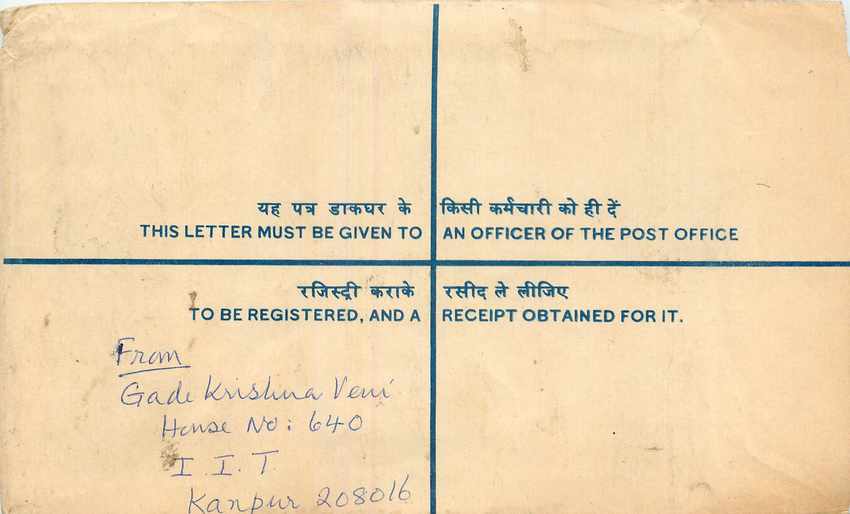 यह पत्र डाकघर के किसी कर्मचारी को ही दें
THIS LETTER MUST BE GIVEN TO AN OFFICER OF THE POST OFFICE
रजिस्ट्री कराके रसीद ले लीजिए
TO BE REGISTERED, AND A RECEIPT OBTAINED FOR IT.
From
Gade Krishna Veni
House No: 640
I.I.T
Kanpur 208016